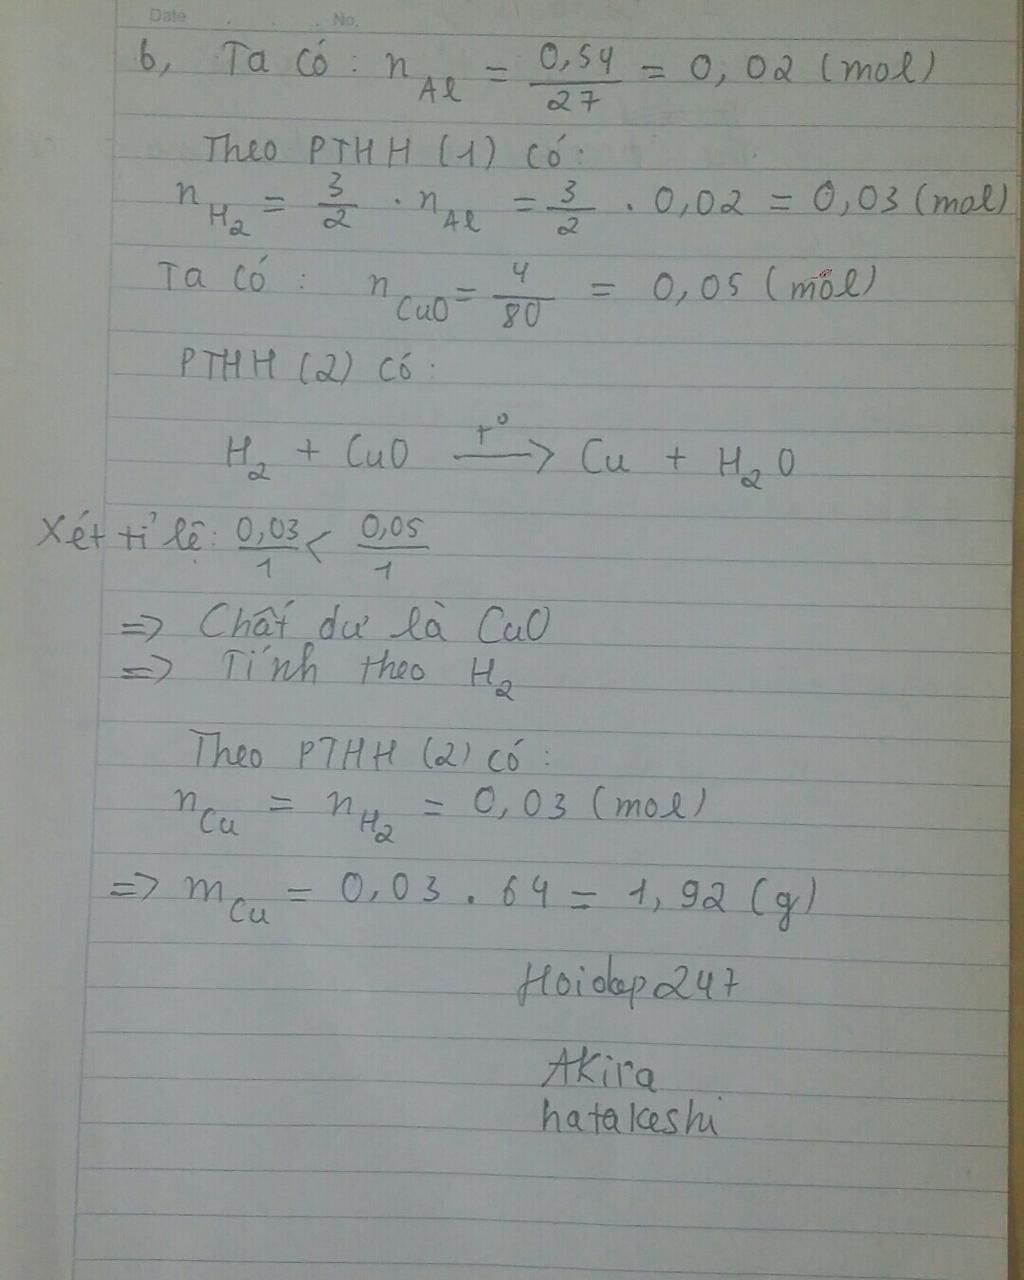 Date . . . No.
b, Ta có: n Al = 0,54/27 = 0,02 (mol)
Theo PTHH (1) có:
n H2 = 3/2 . n Al = 3/2 . 0,02 = 0,03 (mol)
Ta có: n CuO = 4/80 = 0,05 (mol)
PTHH (2) có:
H2 + CuO t° → Cu + H2O
Xét tỉ lệ: 0,03/1 < 0,05/1
=> Chất dư là CuO
=> Tính theo H2
Theo PTHH (2) có:
n Cu = n H2 = 0,03 (mol)
=> m Cu = 0,03 . 64 = 1,92 (g)
Hoidap247
Akira
hatakeshi